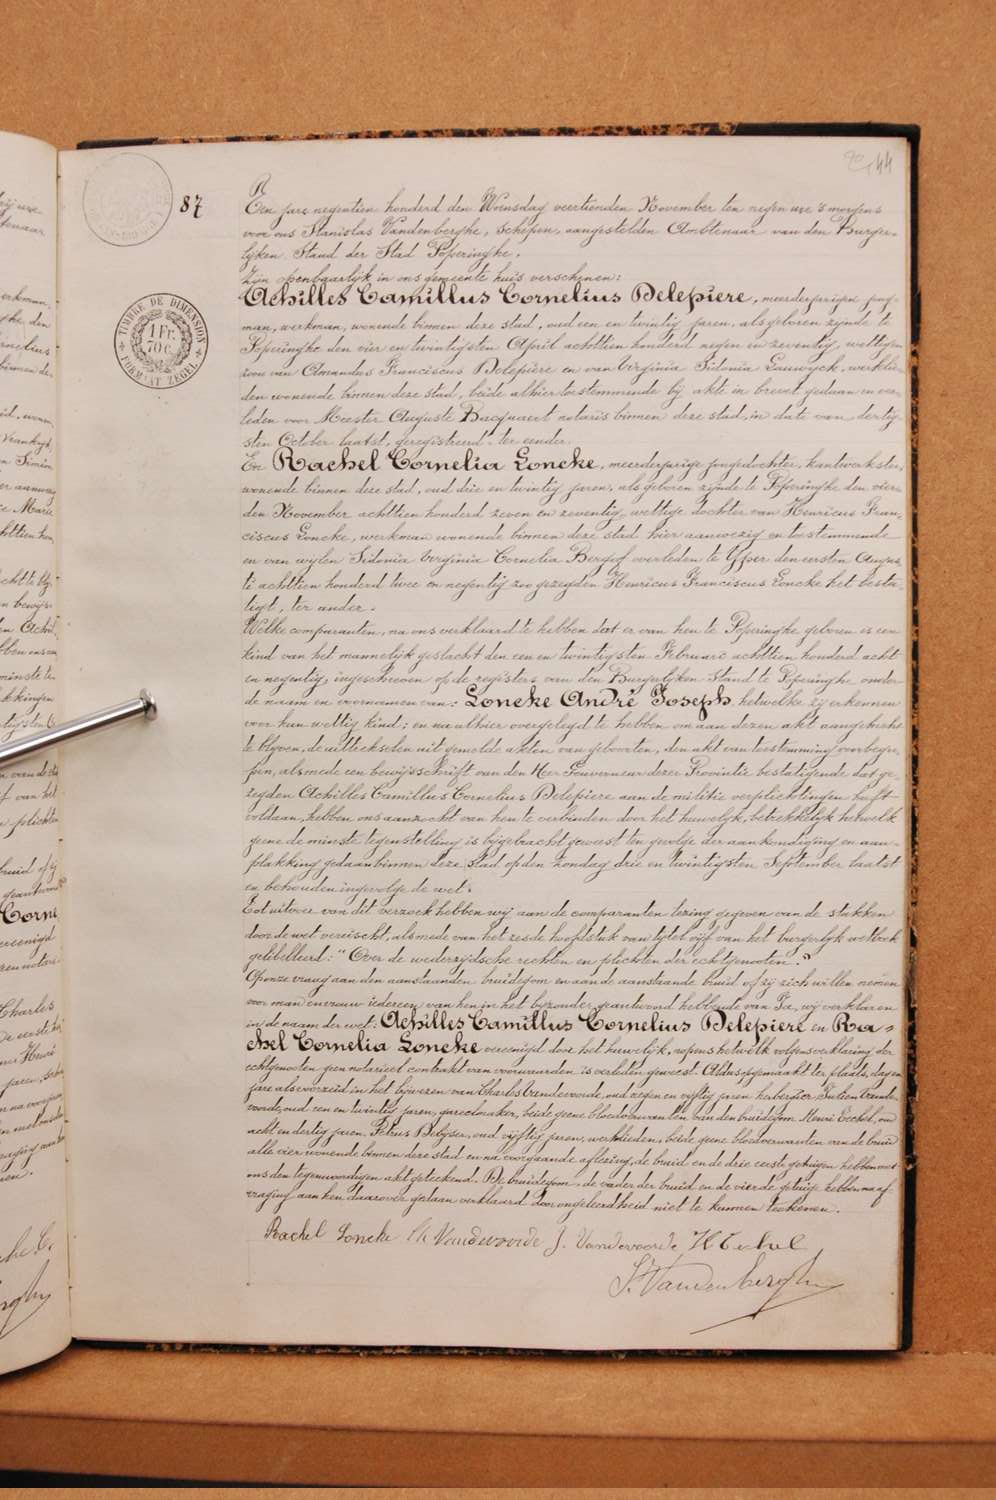 44
87
Een jare negentien honderd den Woensdag veertienden November ten negen ure 's morgens
voor ons Stanislas Vandenberghe, Schepen, aangestelden Ambtenaar van den Burger-
lijken Stand der Stad Poperinghe.
Zijn openbaarlijk in ons gemeente huis verschenen:
Achilles Camillus Cornelius Delepiere, meerderjarigen jong-
man, werkman, wonende binnen deze stad, oud een en twintig jaren, als geboren zijnde te
Poperinghe den vier en twintigsten April achttien honderd negen en zeventig, wettigen
zoon van Amandus Franciscus Delepiere en van Virginia Sidonia Lauwyck, werklie-
den wonende binnen deze stad, beide alhier toestemmende bij akte in brevet gedaan en ver-
leden voor Meester Auguste Bacquaert notaris binnen deze stad, in date van dertig-
sten October laatst, geregistreerd, ter eender.
En Rachel Cornelia Loncke, meerderjarige jongedochter, kantwerkster,
wonende binnen deze stad, oud drie en twintig jaren, als geboren zijnde te Poperinghe den vier-
den November achttien honderd zeven en zeventig, wettige dochter van Henricus Fran-
ciscus Loncke, werkman wonende binnen deze stad hier aanwezig en toestemmende
en van wijlen Sidonia Virginia Cornelia Berghof overleden te Yper den eersten Augus-
ti achttien honderd twee en negentig zoo gezegden Henricus Franciscus Loncke het besta-
tigt, ter ander.
Welke comparanten, na ons verklaard te hebben dat er van hen te Poperinghe geboren is een
kind van het mannelijk geslacht den een en twintigsten Februari achttien honderd acht
en negentig, ingeschreven op de registers van den Burgerlijken Stand te Poperinghe onder
de naam en voornamen van: Loncke André Joseph, hetwelke zij erkennen
voor hun wettig kind; en na alhier overgelegd te hebben om aan dezen akt aangehecht
te blyven, de uittrekselen uit gemelde akten van geboorten, den akt van toestemming voorbegre-
pen, alsmede een bewijsschrift van den Heer Gouverneur dezer Provintie bestatigende dat ge-
zegden Achilles Camillus Cornelius Delepiere aan de militie verplichtingen heeft
voldaan, hebben ons aanzocht van hen te verbinden door het huwelyk, betrekkelijk hetwelk
geene de minste tegenstelling is bijgebracht geweest ten gevolge der aankondiging en aan-
plakking gedaan binnen deze stad op den zondag drie en twintigsten September laatst
en behouden ingevolge de wet.
Tot uitvoer van dit verzoek hebben wij aan de comparanten lezing gegeven van de stukken
door de wet vereischt, alsmede van het zesde hoofdstuk van tytel vijf van het burgerlyk wetboek
getitelleerd: "Over de wederzijdsche rechten en plichten der echtgenooten."
Op onze vraag aan den aanstaanden bruidegom en aan de aanstaande bruid of zij zich willen nemen
voor man en vrouw iedereen van hen in het byzonder, geantwoord hebbende van Ja, wij verklaren
in de naam der wet: Achilles Camillus Cornelius Delepiere en Ra-
chel Cornelia Loncke vereenigd door het huwelijk, nopens hetwelk volgens verklaring der
echtgenooten geen notarieel contrakt van voorwaarden is verleden geweest. Aldus opgemaakt ter plaats, dag en
jare als voorzeid in het bywezen van Charles Vandevoorde, oud negen en vyftig jaren herbergier, Julien Vande-
voorde, oud een en twintig jaren, gareelmaker, beide geene bloedverwanten van den bruidegom, Henri Eechel, oud
acht en dertig jaren, Petrus Delyser, oud vyftig jaren, werklieden, beide geene bloedverwanten van de bruid
alle vier wonende binnen deze stad en na voorgaande aflezing, de bruid en de drie eerste getuigen hebben met
ons den tegenwoordigen akt geteekend. De bruidegom, de vader der bruid en de vierde getuige hebben na af-
vraging aan hen daarover gedaan verklaard door ongeleerdheid niet te kunnen teekenen.
Rachel Loncke Ch Vandevoorde J. Vandevoorde H Eechel
S. Vandenberghe
TIMBRE DE DIMENSION
1 Fr. 70 c.
FORMAAT ZEGEL